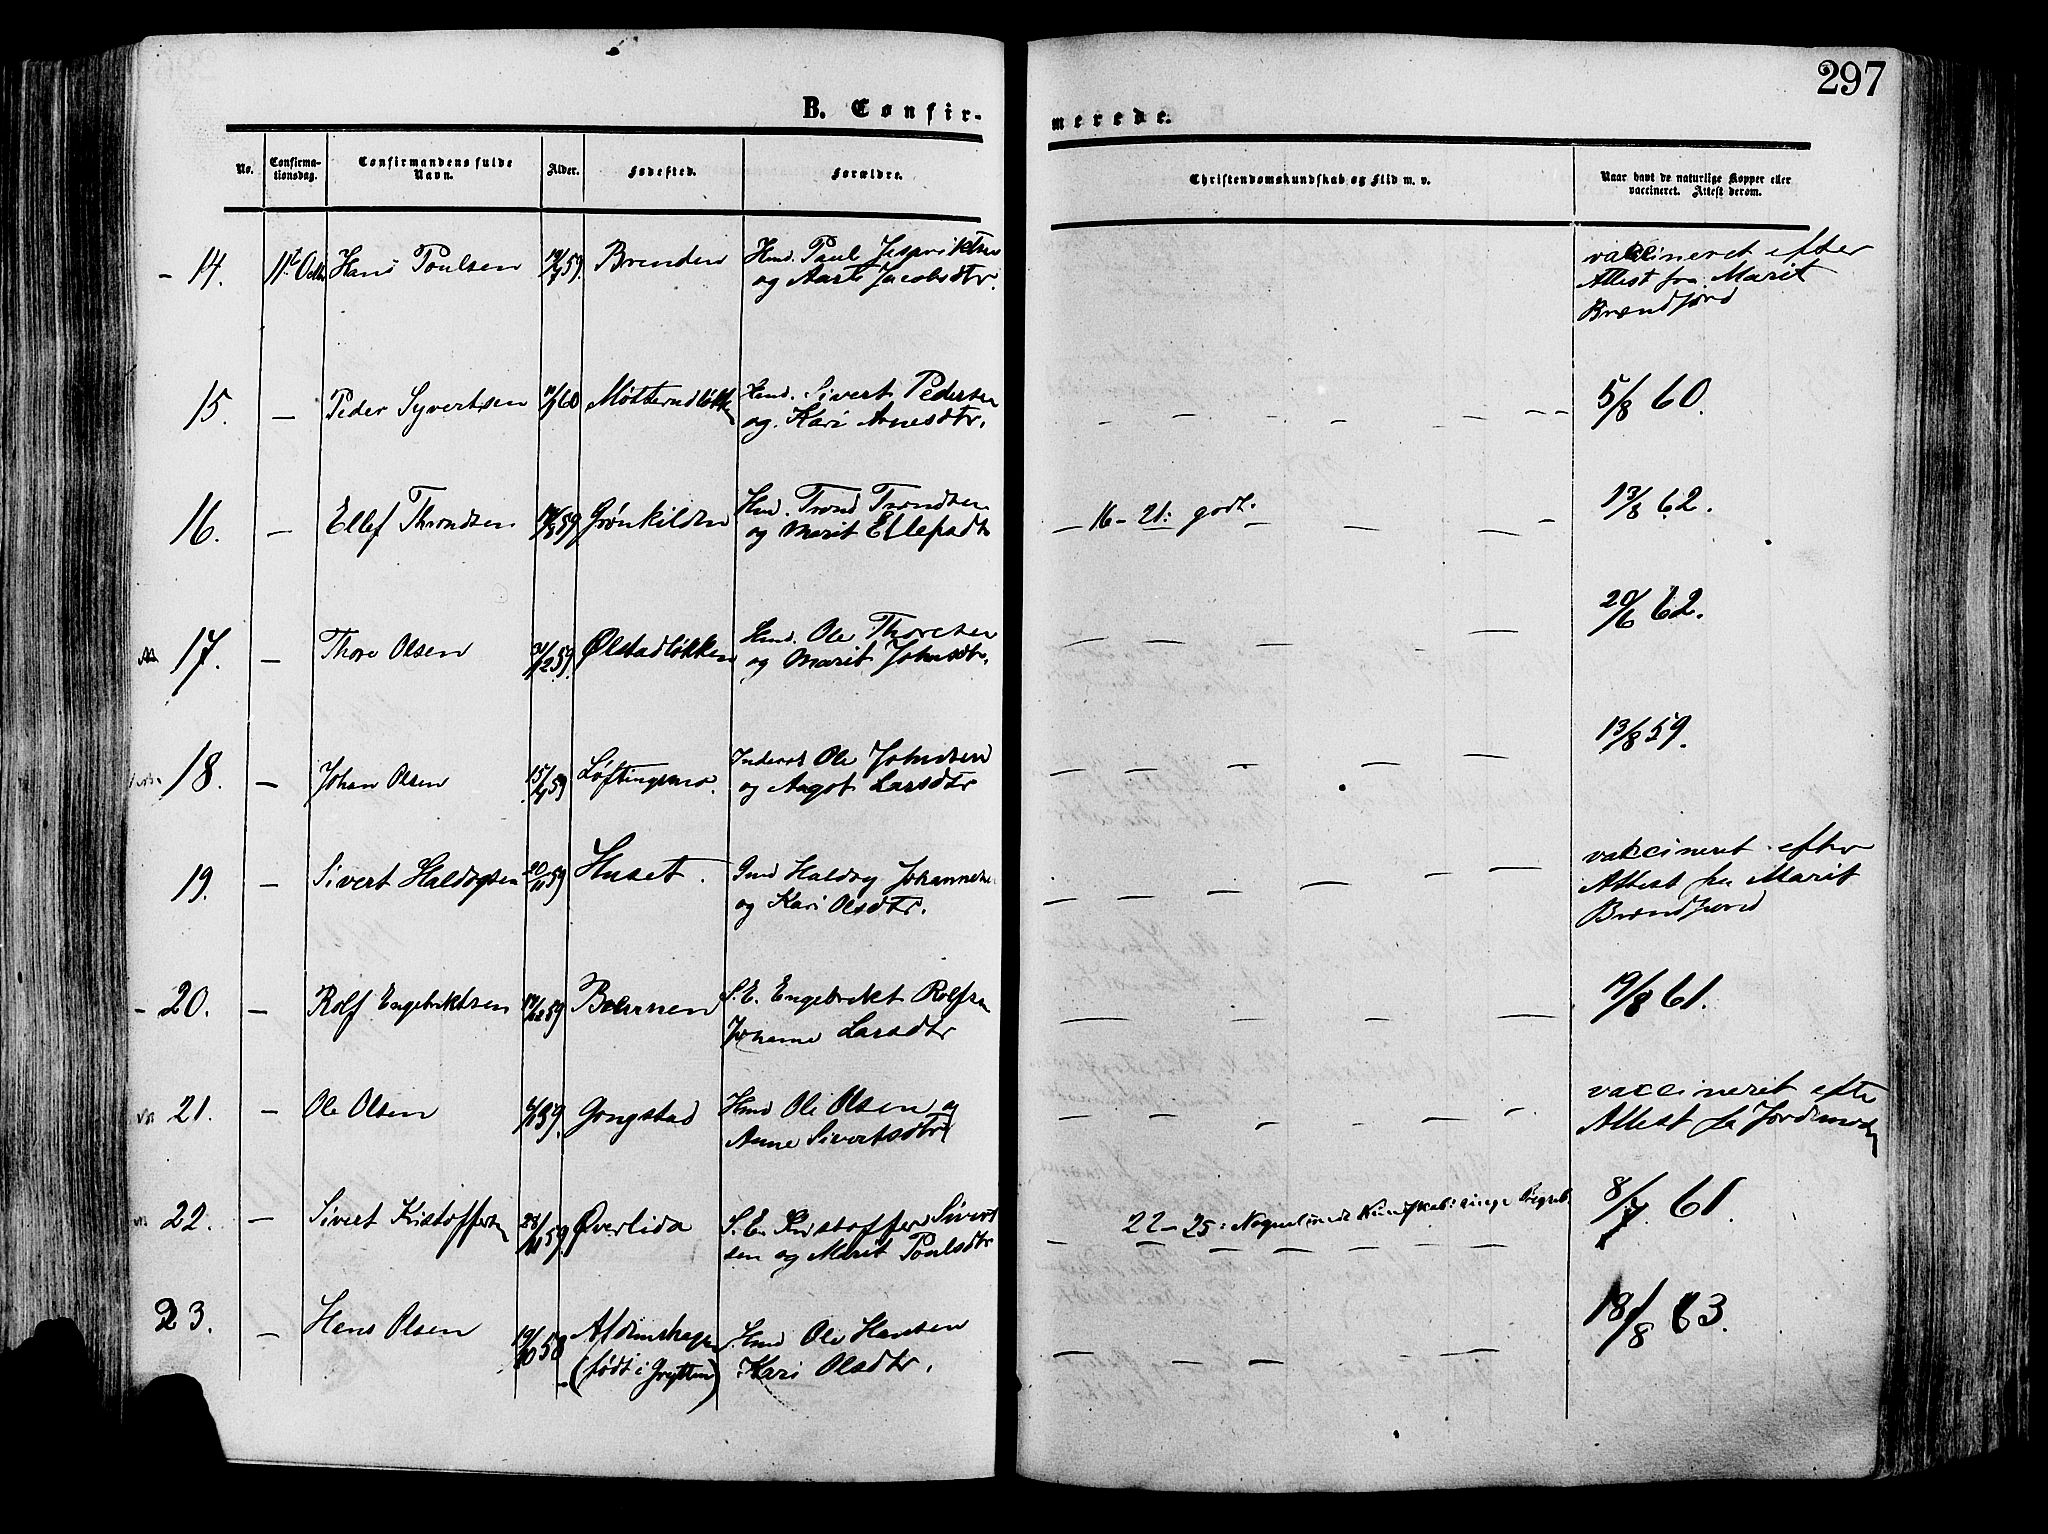 297
B. Confir-
merede.
No.
Confirma-
tionsdag.
Confirmandens fulde
Navn.
Alder.
Fødested.
Forældre.
Christendomskundskab og Flid m. v.
Naar havt de naturlige Kopper eller
vaccineret. Attest derom.
14. Hans Poulsen Brenden Hmd. Paul
og Jacobsdtr.
vaccineret efter
Attest fra Marit
Brændjord
15. — Peder Syvertsen Hmd. Sivert Pedersen
og Kari Arnesdtr.
5/8 60.
16. — Ellef Throndsen Grønkilden Hmd. Trond Trondsen
og Marit
— 16 - 21: godt.
13/8 62.
17. — Thore Olsen Ølstadløkken Hmd. Ole Thoresen
og Marit Johnsdtr.
20/6 62.
18. — Johan Olsen Løftingsmo. Inderst Ole Johnsen
og Aagot Larsdtr
13/8 59.
19. — Sivert Haldogsen 20/11 59 Huset. Gmd Haldog Johannesen
og Kari Olsdtr.
vaccineret efter
Attest fra Marit
Brændjord
20. — Rolf Engebriktsen S. E. Engebrikt Rolfsen
Larsdtr
19/8 61.
21. — Ole Olsen Gongstad Hmd Ole Olsen og
Anne Sivertsdtr
vaccineret efter
Attest fra
22. — Sivert Kristoffersen 28/11 59 Øverlida S. E. Kristoffer Sivert
sen og Marit Poulsdtr
22 - 25: Kundskab: ringe
8/7 61.
23. — Hans Olsen 19/10 58
(født i Grytten)
Hmd Ole Hansen
Kari Olsdtr.
18/8 63.